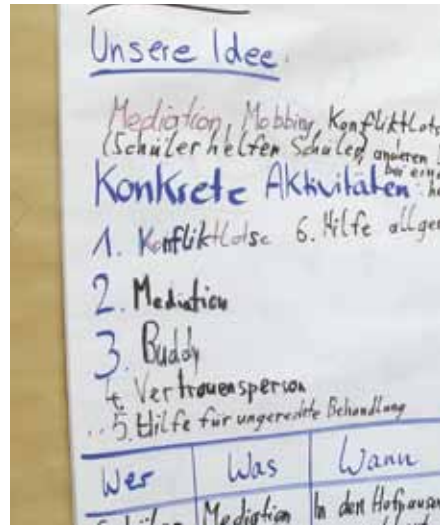 Unsere Idee:
Mediation, Mobbing, Konfliktlots
(Schüler helfen Schüler) anderen
bei ein
Konkrete Aktivitäten:
1. Konfliktlotse 6. Hilfe allge
2. Mediation
3. Buddy
4. Vertrauensperson
5. Hilfe für ungerechte Behandlung
Wer Was Wann
Schüler Mediation In den Hofpausen